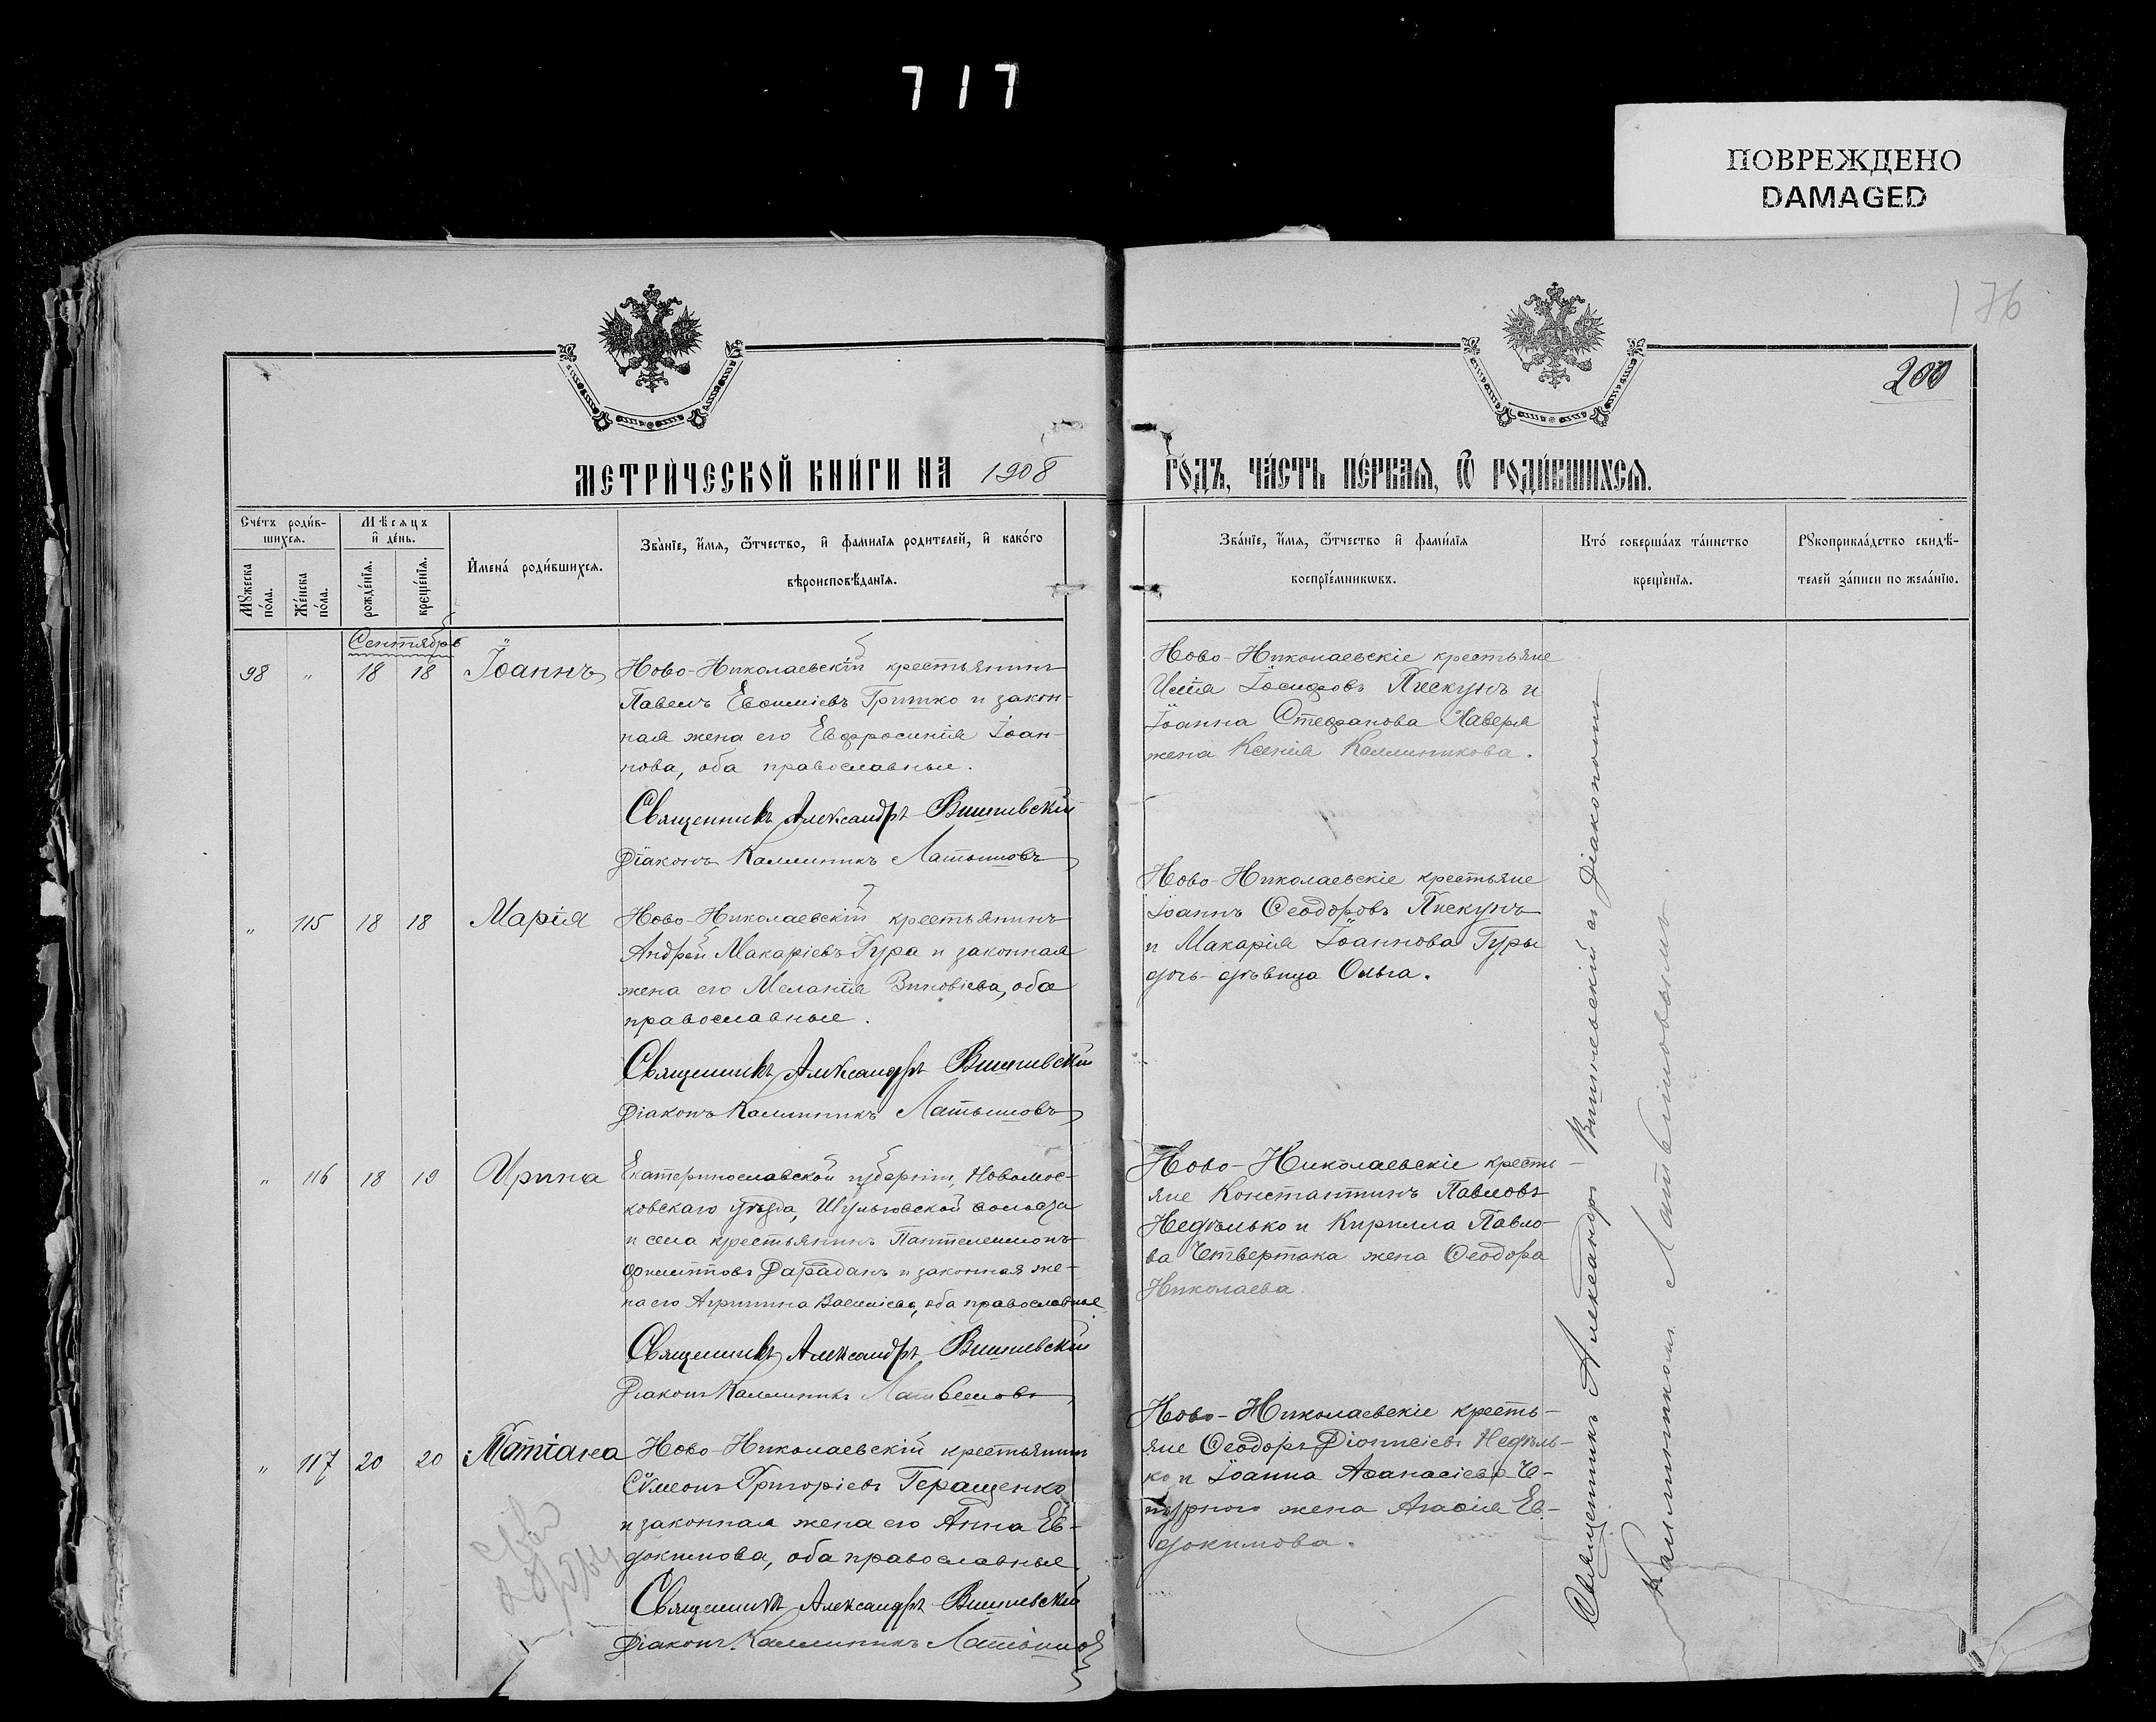 717
ПОВРЕЖДЕНО
DAMAGED
176
200
МЕТРИ́ЧЕСКОЙ КНИ́ГИ НА 1908
ГО́ДЪ, ЧА́СТЬ ПЕ́РВАЯ, Ѽ РОДИ́ВШИХСЯ.
Сче́тъ роди́в-
шихся.
Мѣ́сяцъ
и҆ де́нь.
Мꙋ́жеска по́ла.
Же́нска по́ла.
рожде́нїѧ.
креще́нїѧ.
И҆мена̀ роди́вшихся.
Зва́нїе, и҆́мя, ѻ҆́тчество, и҆ фами́лїя родителей, и҆ како́го
вѣроисповѣ́данїя.
Зва́нїе, и҆́мя, ѻ҆́тчество и҆ фами́лїя
воспрїе́мникѡвъ.
Кто̀ соверша́лъ та́инство
креще́нїя.
Рꙋкоприкла́дство свидѣ́-
телей за́писи по жела́нїю.
Сентябрь
98 " 18 18 Іоаннъ
Ново-Николаевскій крестьянинъ
Павелъ Евѳиміевъ Гришко и закон-
ная жена его Евфросинія Іоан-
нова, оба православные.
Священникъ Александръ Вишневскій
Діаконъ Каллиникъ Матвѣновъ
Ново-Николаевскіе крестьяне
Илія Іосифовъ Пискунъ и
Іоанна Стефанова Хаверя
жена Ксенія Каллиникова.
" 115 18 18 Марія
Ново-Николаевскій крестьянинъ
Андрей Макаріевъ Гура и законная
жена его Меланія Зиновіева, оба
православные.
Священникъ Александръ Вишневскій
Діаконъ Каллиникъ
Ново-Николаевскіе крестьяне
Іоаннъ Ѳеодоровъ Пискунъ
и Макарія Іоаннова Гуры
дочь-дѣвица Ольга.
" 116 18 19 Ирина
Екатеринославской губерніи, Новомос-
ковскаго уѣзда, Шульговской волости
и села крестьянинъ Пантелеимонъ
и законная же-
на его Агрипина Василіева, оба православные.
Священникъ Александръ Вишневскій
Діаконъ Каллиникъ
Ново-Николаевскіе кресть-
яне Константинъ Павловъ
Недѣлько и Кирилла Павло-
ва Четвертака жена Ѳеодора
Николаева.
" 117 20 20 Татіана
Ново-Николаевскій крестьянинъ
Сѵмеонъ Григоріевъ Геращенко
и законная жена его Анна Ев-
докимова, оба православные
Священникъ Александръ Вишневскій
Діаконъ Каллиникъ
Ново-Николаевскіе кресть-
яне Ѳеодоръ Діонисіевъ Недѣль-
ко и Іоанна Аѳанасіева
жена Агаѳія Ев-
докимова.
Священникъ Александръ Вишневскій съ Діакономъ
Каллиникомъ